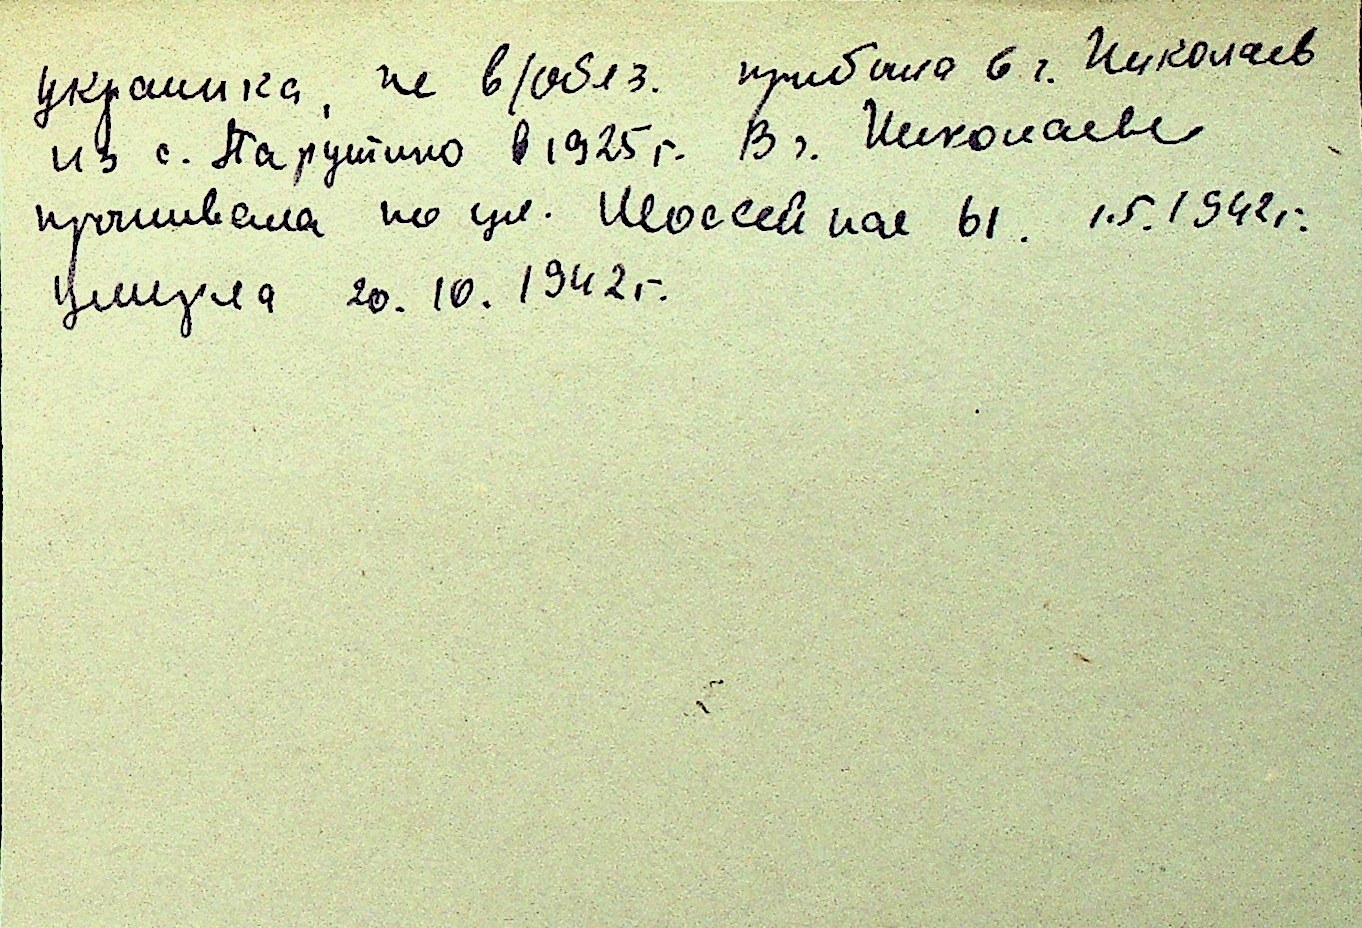 украинка, не в/обяз. прибыла в г. Николаев
из с. Парутино в 1925 г. В г. Николаеве
проживала по ул. Шоссейная 61. 1.5.1942 г.
умерла 20.10.1942 г.